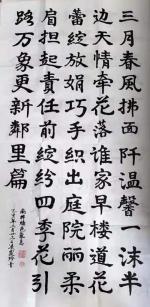 三月春風拂面阡温馨一沫半
边天情牵花落谁家早楼道花
蕾綻放娟巧手织出庭院丽柔
肩担起責任前綻兮四季花引
路万象更新鄰里篇